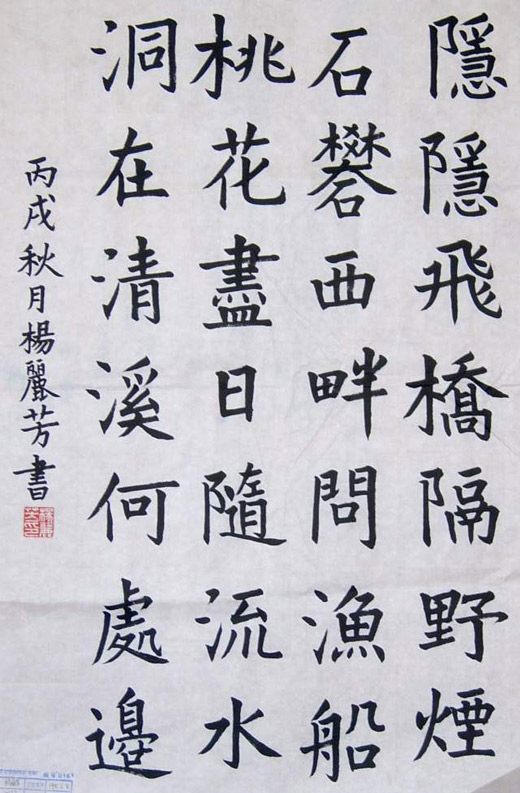 隱隱飛橋隔野煙
石礬西畔問漁船
桃花盡日隨流水
洞在清溪何處邊
丙戌秋月楊麗芳書